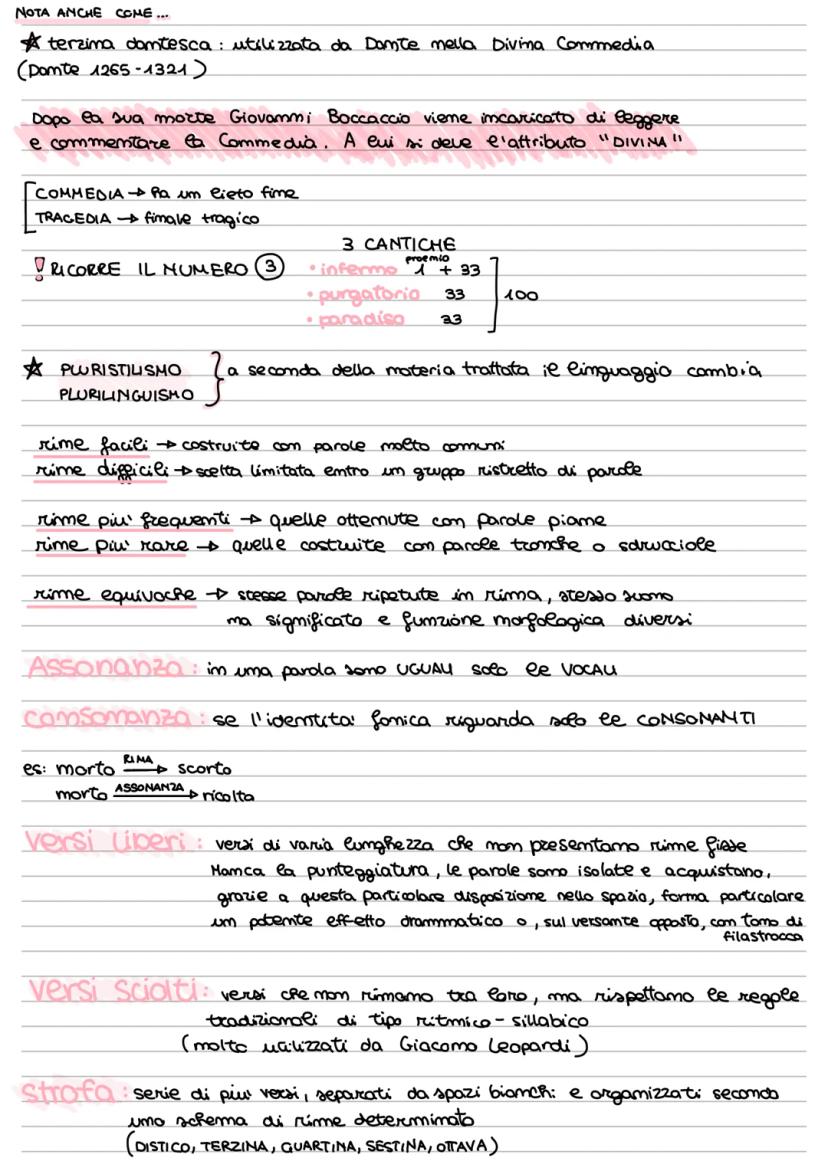 NOTA ANCHE COME...
☆ terzina dantesca : utilizzata da Dante nella Divina Commedia
(Dante 1265-1321)
Dopo la sua morte Giovanni Boccaccio viene incaricato di leggere
e commentare la Commedia. A lui si deve l'attributo "DIVINA"
COMMEDIA → ha un lieto fine
TRAGEDIA → finale tragico
3 CANTICHE
! RICORRE IL NUMERO 3
proemio
• inferno 1 + 33
• purgatorio 33
• paradiso 33
100
☆ PLURISTILISMO
PLURILINGUISMO
a seconda della materia trattata il linguaggio cambia
rime facili → costruite con parole molto comuni
rime difficili → scelta limitata entro un gruppo ristretto di parole
rime piu' frequenti → quelle ottenute con parole piane
rime piu' rare → quelle costruite con parole tronche o sdrucciole
rime equivoche → stesse parole ripetute in rima, stesso suono
ma significato e funzione morfologica diversi
Assonanza : in una parola sono UGUALI solo le VOCALI
consonanza : se l'identita' fonica riguarda solo le CONSONANTI
es: morto RIMA → scorto
morto ASSONANZA → ricolta
versi liberi : versi di varia lunghezza che non presentano rime fisse
Manca la punteggiatura, le parole sono isolate e acquistano,
grazie a questa particolare disposizione nello spazio, forma particolare
un potente effetto drammatico o, sul versante opposto, con tono di
filastrocca
versi sciolti : versi che non rimano tra loro, ma rispettano le regole
tradizionali di tipo ritmico-sillabico
(molto utilizzati da Giacomo Leopardi)
strofa : serie di piu' versi, separati da spazi bianchi e organizzati secondo
uno schema di rime determinato
(DISTICO, TERZINA, QUARTINA, SESTINA, OTTAVA)